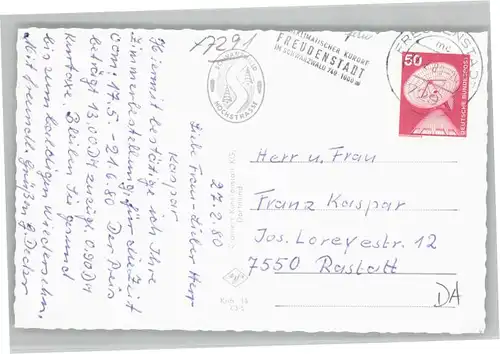 7291
HEILKLIMATISCHER KURORT
FREUDENSTADT
IM SCHWARZWALD 740-1000 m
HOCHSTRASSE
50
DEUTSCHE BUNDESPOST
27.2.80
Liebe Frau, Lieber Herr
Kaspar
Hiermit bestätige ich Ihre
Zimmerbestellung, für die Zeit
vom: 17.5 - 21.6.80 Der Preis
beträgt 13.00 DM zuzügl. 0.90 DM
Kurtaxe. Bleiben Sie gesund
bis zum baldigen Wiedersehn,
Mit freundl. Grüßen
Herr u. Frau
Franz Kaspar
Jos. Loreyestr. 12
7550 Rastatt
DA